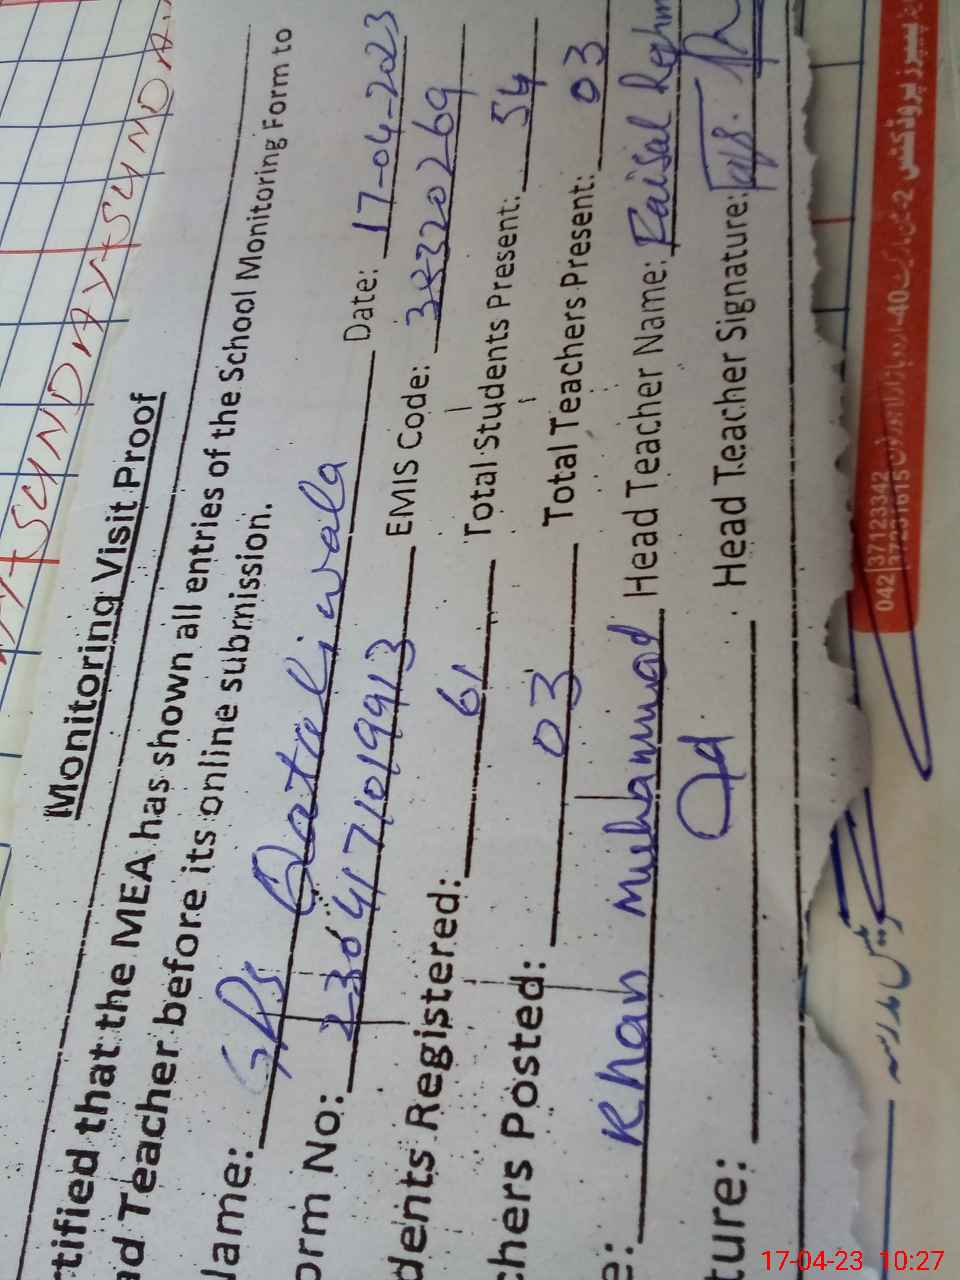 Y+SUNDAY+SUNDA
Monitoring Visit Proof
rtified that the MEA has shown all entries of the School Monitoring Form to
ad Teacher before its online submission.
Name: GPS Qataliwala Date: 17-04-2023
orm No: 2304171019913 EMIS Code: 38320269
dents Registered: 61 Total Students Present: 54
chers Posted: 03 Total Teachers Present: 03
e: Khan Muhammad Head Teacher Name: Faisal
ture: Head Teacher Signature:
042 37123342
37231615
17-04-23 10:27